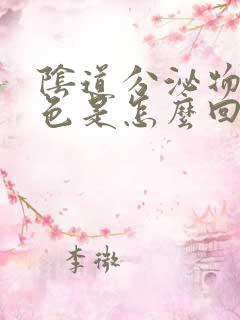 陰道分泌物
色是怎麼回
李微